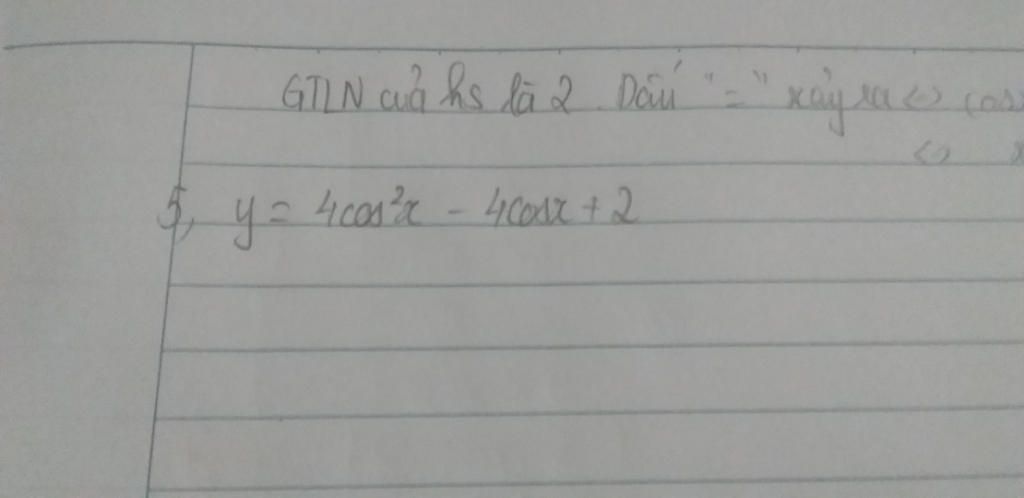 GTLN của hs là 2. Dấu "=" xảy ra <=> cosx
<=>
5, y = 4cos²x - 4cosx + 2